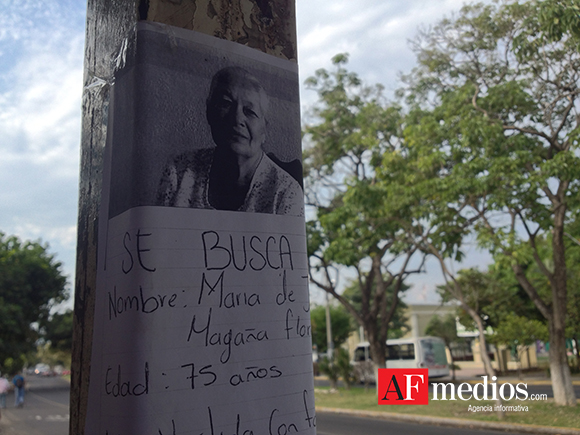 SE BUSCA
Nombre: Maria de
Magaña flor
Edad: 75 años
AFmedios.com
Agencia informativa